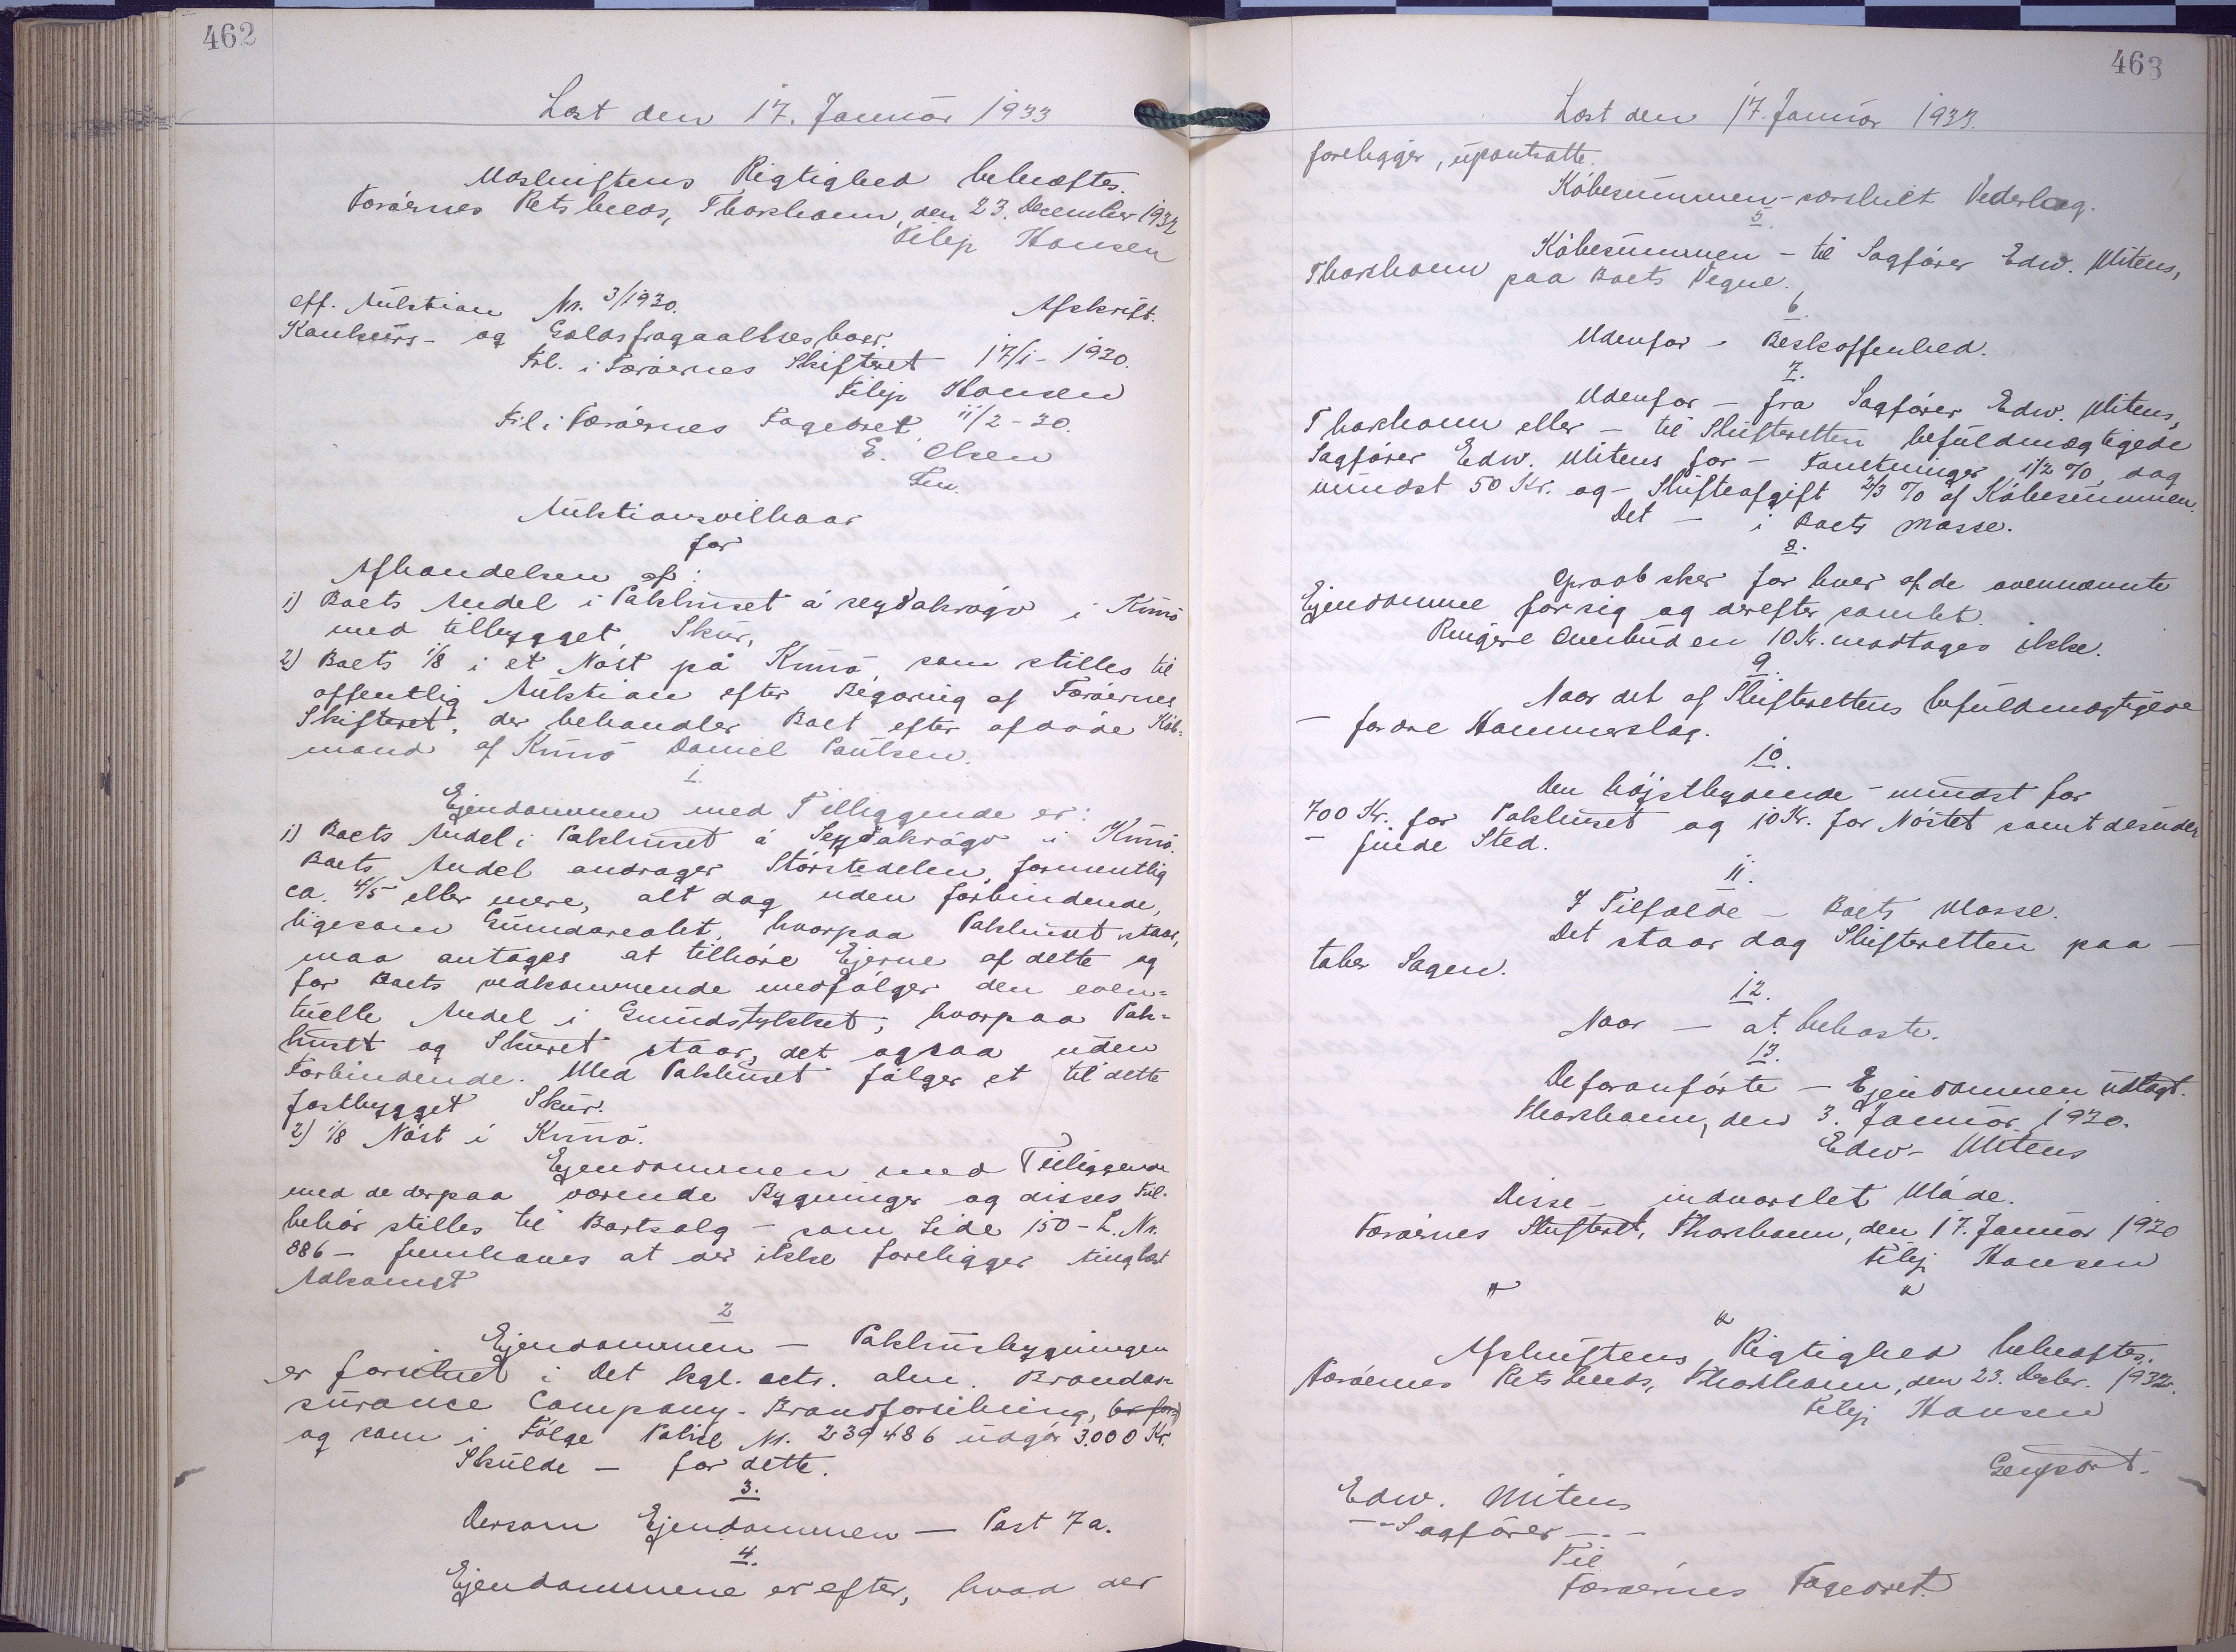 462
Læst den 17. Januar 1933
Udskriftens Rigtighed bekræftes.
Færøernes Retskreds, Thorshavn, den 23. December 1932
Filip Hansen
Off. Auktion Nr. 3/1930.
Afskrift.
Konkurs- og Gældsfragaaelsesboer.
Frl. i Færøernes Skifteret 17/1-1930.
Filip Hansen
Frl. i Færøernes Fogedret 11/2-30.
E. Olsen
Fm.
Auktionsvilkaar
for
Afhændelsen af:
1) Boets Andel i Pakhuset á Seyðakrógv i Kunö
med tilbygget Skur,
2) Boets 1/8 i et Nöst på Kunö, som stilles til
offentlig Auktion efter Begæring af Færøernes
Skifteret, der behandler Boet efter afdøde Køb-
mand af Kunö Daniel Poulsen.
1.
Ejendommen med Tilliggende er:
1) Boets Andel i Pakhuset á Seyðakrógv i Kunö.
Boets Andel andrager Størstedelen, formentlig
ca. 4/5 eller mere, alt dog uden forbindende,
ligesom Grundarealet, hvorpaa Pakhuset staar,
maa antages at tilhøre Ejerne af dette og
for Boets vedkommende medfølger den even-
tuelle Andel i Grundstykket, hvorpaa Pak-
huset og Skuret staar, det ogsaa uden
Forbindende. Med Pakhuset følger et til dette
fastbygget Skur.
2) 1/8 Nöst i Kunö.
Ejendommen med Tilliggende
med de derpaa værende Bygninger og disses Til-
behør stilles til Bortsalg - som Side 150 - L. Nr.
886 - fremhæves at der ikke foreligger tinglæst
Adkomst
2
Ejendommen - Pakhusbygningen
er forsikret i Det kgl. octr. alm. Brandas-
surance Company - Brandforsikring,
og som i Følge Police Nr. 239486 udgør 3.000 Kr.
Skulde - for dette.
3.
Dersom Ejendommen - Post 7a.
4.
Ejendommene er efter, hvad der
463
Læst den 17. Januar 1933.
foreligger, upantsatte.
Købesummen - særskilt Vederlag.
5.
Købesummen - til Sagfører Edw. Mitens,
Thorshavn paa Boets Vegne.
6.
Udenfor - Beskaffenhed.
7.
Udenfor - fra Sagfører Edw. Mitens,
Thorshavn eller - til Skifteretten befuldmægtigede
Sagfører Edw. Mitens for - Forretninger 1/2 %, dog
mindst 50 Kr. og - Skifteafgift 2/3 % af Købesummen.
Det - i Boets Masse.
8.
Opraab sker for hver af de ovennævnte
Ejendomme for sig og derefter samlet.
Ringere Overbud en 10 Kr. modtages ikke.
9.
Naar det af Skifterettens befuldmægtigede
- fordre Hammerslag.
10.
Den højstbydende - mindst for
700 Kr. for Pakhuset og 10 Kr. for Nöstet samt desuden
- finde Sted.
11.
I Tilfælde - Boets Masse.
Det staar dog Skifteretten paa -
taber Sagen.
12.
Naar - at bekoste.
13.
De foranførte - Ejendommen udlagt.
Thorshavn, den 3. Januar 1930.
Edw. Mitens
Disse - indvarslet Møde.
Færøernes Skifteret, Thorshavn, den 17. Januar 1930
Filip Hansen
Afskriftens Rigtighed bekræftes.
Færøernes Retskreds, Thorshavn, den 23. Decbr. 1932.
Filip Hansen
Genpart.
Edw. Mitens
- - Sagfører - . -
Til
Færøernes Fogedret.